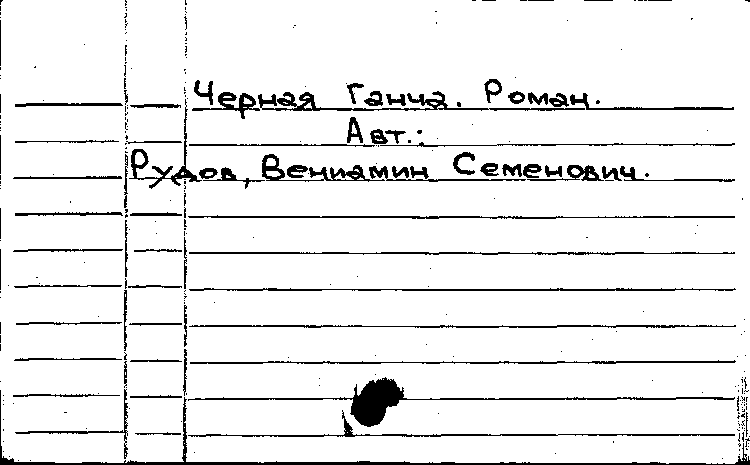 Черная Ганча. Роман.
Авт.:
Рудов, Вениамин Семенович.